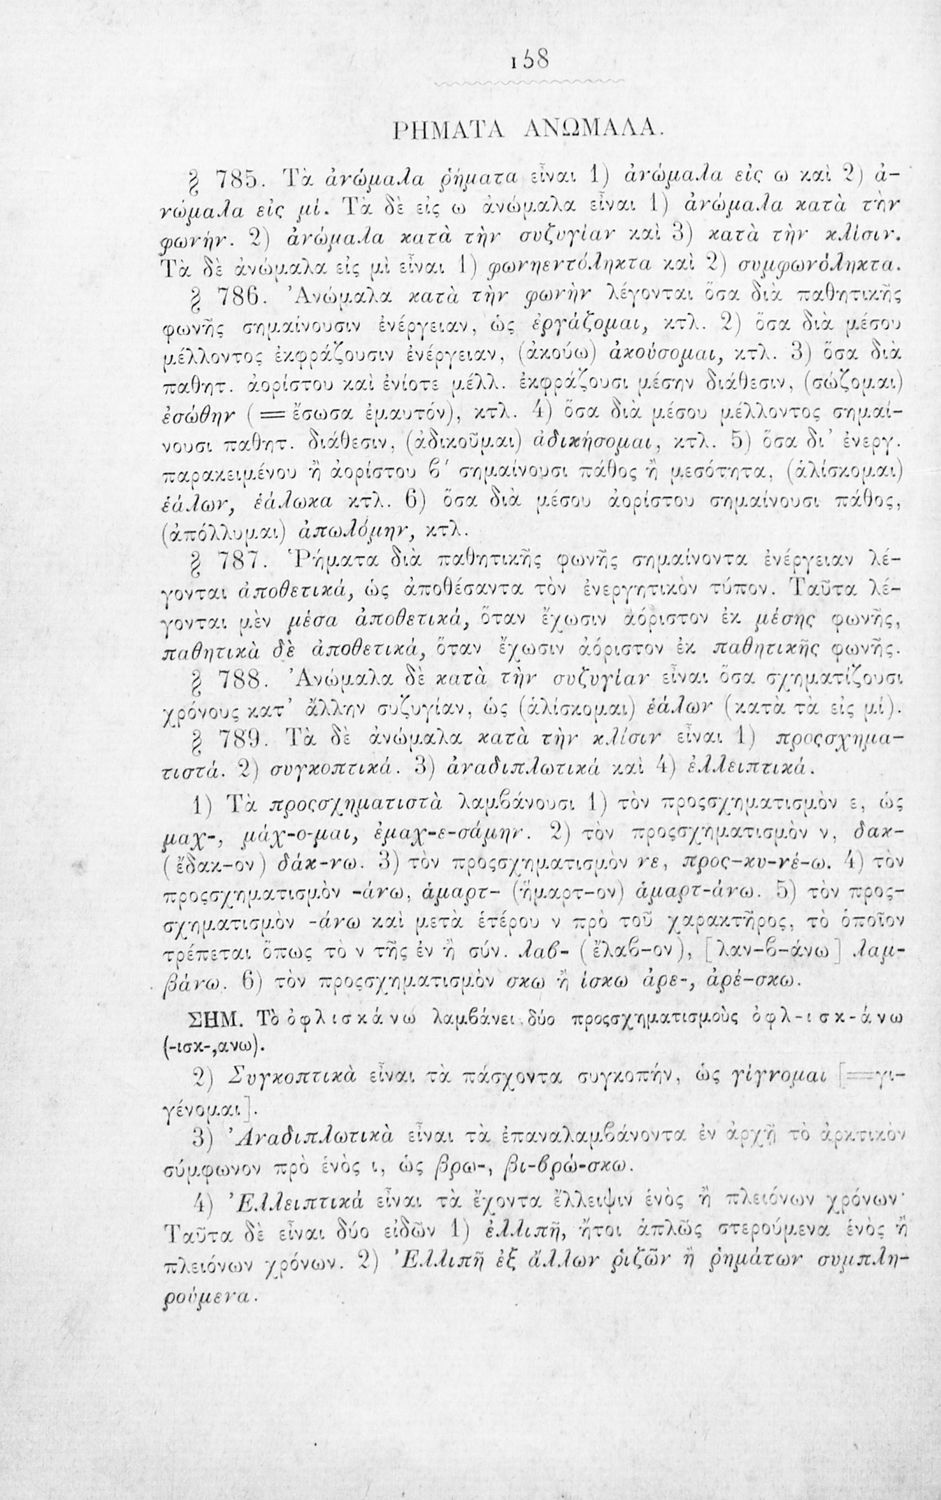 158
ΡΗΜΑΤΑ ΑΝΩΜΑΛΑ.
§ 785. Τὰ ἀνώμαλα ῥήματα εἶναι 1) ἀνώμαλα εἰς ω καὶ 2) ἀ-
νώμαλα εἰς μί. Τὰ δὲ εἰς ω ἀνώμαλα εἶναι 1) ἀνώμαλα κατὰ τὴν
φωνήν. 2) ἀνώμαλα κατὰ τὴν συζυγίαν καὶ 3) κατὰ τὴν κλίσιν.
Τὰ δὲ ἀνώμαλα εἰς μὶ εἶναι 1) φωνηεντόληκτα καὶ 2) συμφωνόληκτα.
§ 786. Ἀνώμαλα κατὰ τὴν φωνὴν λέγονται ὅσα διὰ παθητικῆς
φωνῆς σημαίνουσιν ἐνέργειαν, ὡς ἐργάζομαι, κτλ. 2) ὅσα διὰ μέσου
μέλλοντος ἐκφράζουσιν ἐνέργειαν, (ἀκούω) ἀκούσομαι, κτλ. 3) ὅσα διὰ
παθητ. ἀορίστου καὶ ἐνίοτε μέλλ. ἐκφράζουσι μέσην διάθεσιν, (σώζομαι)
ἐσώθην (= ἔσωσα ἐμαυτόν), κτλ. 4) ὅσα διὰ μέσου μέλλοντος σημαί-
νουσι παθητ. διάθεσιν, (ἀδικοῦμαι) ἀδικήσομαι, κτλ. 5) ὅσα δι' ἐνεργ.
παρακειμένου ἢ ἀορίστου ϐ' σημαίνουσι πάθος ἢ μεσότητα, (ἁλίσκομαι)
ἑάλων, ἑάλωκα κτλ. 6) ὅσα διὰ μέσου ἀορίστου σημαίνουσι πάθος,
(ἀπόλλυμαι) ἀπωλόμην, κτλ.
§ 787. Ῥήματα διὰ παθητικῆς φωνῆς σημαίνοντα ἐνέργειαν λέ-
γονται ἀποθετικά, ὡς ἀποθέσαντα τὸν ἐνεργητικὸν τύπον. Ταῦτα λέ-
γονται μὲν μέσα ἀποθετικά, ὅταν ἔχωσιν ἀόριστον ἐκ μέσης φωνῆς,
παθητικὰ δὲ ἀποθετικά, ὅταν ἔχωσιν ἀόριστον ἐκ παθητικῆς φωνῆς.
§ 788. Ἀνώμαλα δὲ κατὰ τὴν συζυγίαν εἶναι ὅσα σχηματίζουσι
χρόνους κατ' ἄλλην συζυγίαν, ὡς (ἁλίσκομαι) ἑάλων (κατὰ τὰ εἰς μί).
§ 789. Τὰ δὲ ἀνώμαλα κατὰ τὴν κλίσιν εἶναι 1) προςσχημα-
τιστά. 2) συγκοπτικά. 3) ἀναδιπλωτικά καὶ 4) ἐλλειπτικά.
1) Τὰ προςσχηματιστὰ λαμϐάνουσι 1) τὸν προςσχηματισμὸν ε, ὡς
μαχ-, μάχ-ο-μαι, ἐμαχ-ε-σάμην. 2) τὸν προςσχηματισμὸν ν, δακ-
(ἔδακ-ον) δάκ-νω. 3) τὸν προςσχηματισμὸν νε, προς-κυ-νέ-ω. 4) τὸν
προςσχηματισμὸν -άνω, ἁμαρτ- (ἥμαρτ-ον) ἁμαρτ-άνω. 5) τὸν προς-
σχηματισμὸν -άνω καὶ μετὰ ἑτέρου ν πρὸ τοῦ χαρακτῆρος, τὸ ὁποῖον
τρέπεται ὅπως τὸ ν τῆς ἐν ἢ σύν. λαϐ- (ἔλαϐ-ον), [λαν-ϐ-άνω] λαμ-
βάνω. 6) τὸν προςσχηματισμὸν σκω ἢ ίσκω ἀρε-, ἀρέ-σκω.
ΣΗΜ. Τὸ ὀφλισκάνω λαμβάνει δύο προςσχηματισμοὺς ὀφλ-ισκ-άνω
(-ισκ-,ανω).
2) Συγκοπτικὰ εἶναι τὰ πάσχοντα συγκοπήν, ὡς γίγνομαι [=γι-
γένομαι].
3) Ἀναδιπλωτικὰ εἶναι τὰ ἐπαναλαμϐάνοντα ἐν ἀρχῇ τὸ ἀρκτικὸν
σύμφωνον πρὸ ἑνὸς ι, ὡς βρω-, βι-ϐρώ-σκω.
4) Ἐλλειπτικά εἶναι τὰ ἔχοντα ἔλλειψιν ἑνὸς ἢ πλειόνων χρόνων·
Ταῦτα δὲ εἶναι δύο εἰδῶν 1) ἐλλιπῆ, ἤτοι ἁπλῶς στερούμενα ἑνὸς ἢ
πλειόνων χρόνων. 2) Ἐλλιπῆ ἐξ ἄλλων ῥιζῶν ἢ ῥημάτων συμπλη-
ρούμενα.